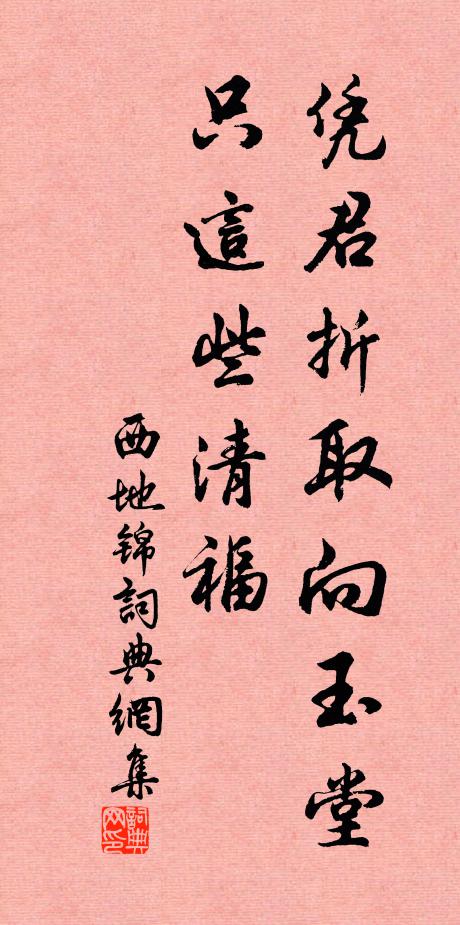 凭君折取向玉堂
只這些清福
西地锦詞典網集
詞典
网印